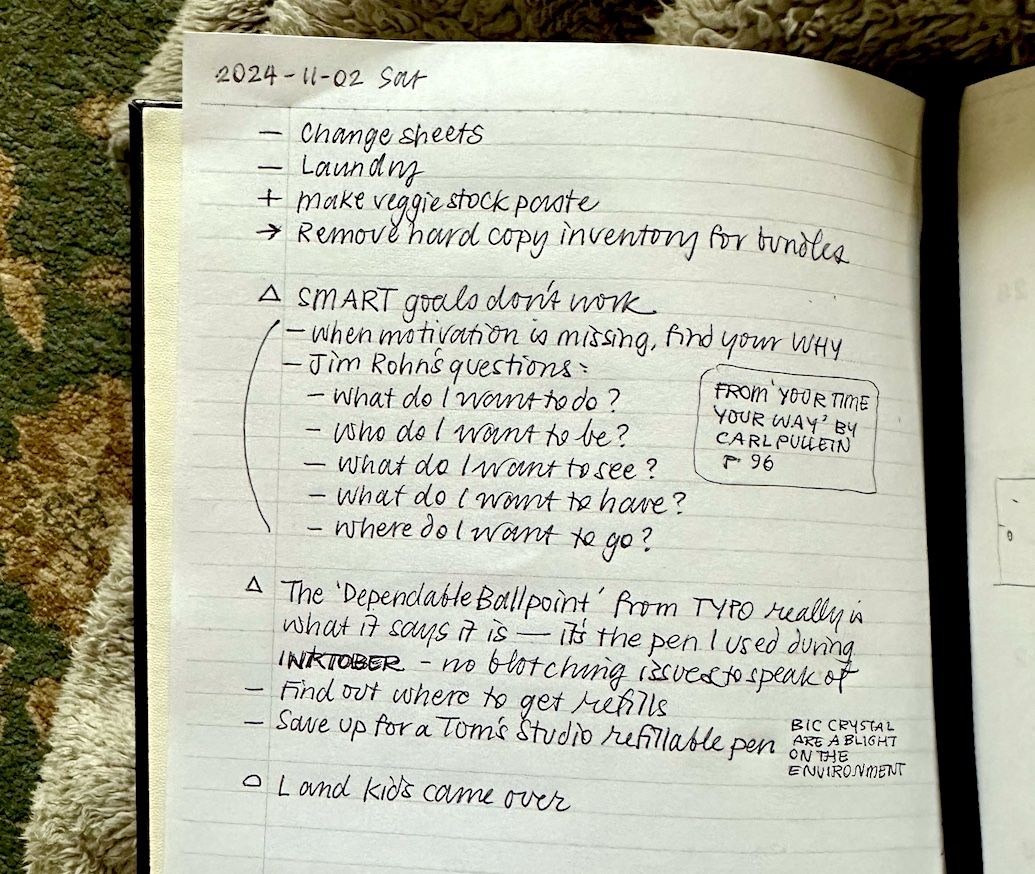 2024-11-02 Sat
— Change sheets
— Laundry
+ make veggie stock paste
→ Remove hard copy inventory for bundles
△ SMART goals don't work
— when motivation is missing, find your WHY
— Jim Rohn's questions:
— What do I want to do?
— Who do I want to be?
— What do I want to see?
— What do I want to have?
— Where do I want to go?
FROM 'YOUR TIME
YOUR WAY' BY
CARL PULLEIN
P 96
△ The 'Dependable Ballpoint' from TYPO really is
what it says it is — it's the pen I used during
INKTOBER - no blotching issues to speak of
— Find out where to get refills
— Save up for a Tom's Studio refillable pen
BIC CRYSTAL
ARE A BLIGHT
ON THE
ENVIRONMENT
○ L and kids came over